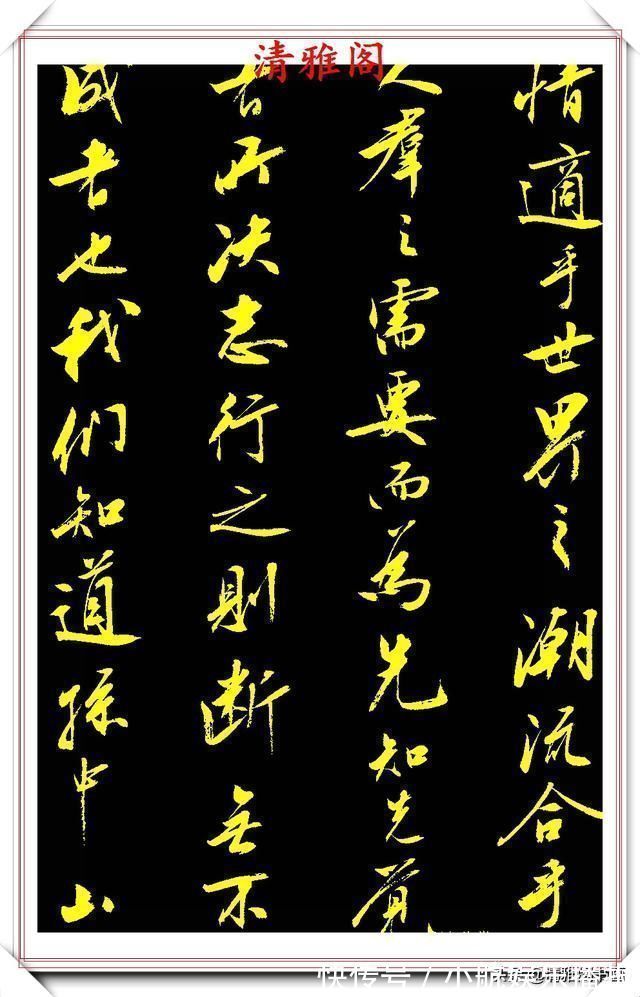 清雅阁
情適乎世界之潮流合乎
人羣之需要而為先知先覺
者所决志行之則断無不
成者也我们知道孫中山
快传号/小